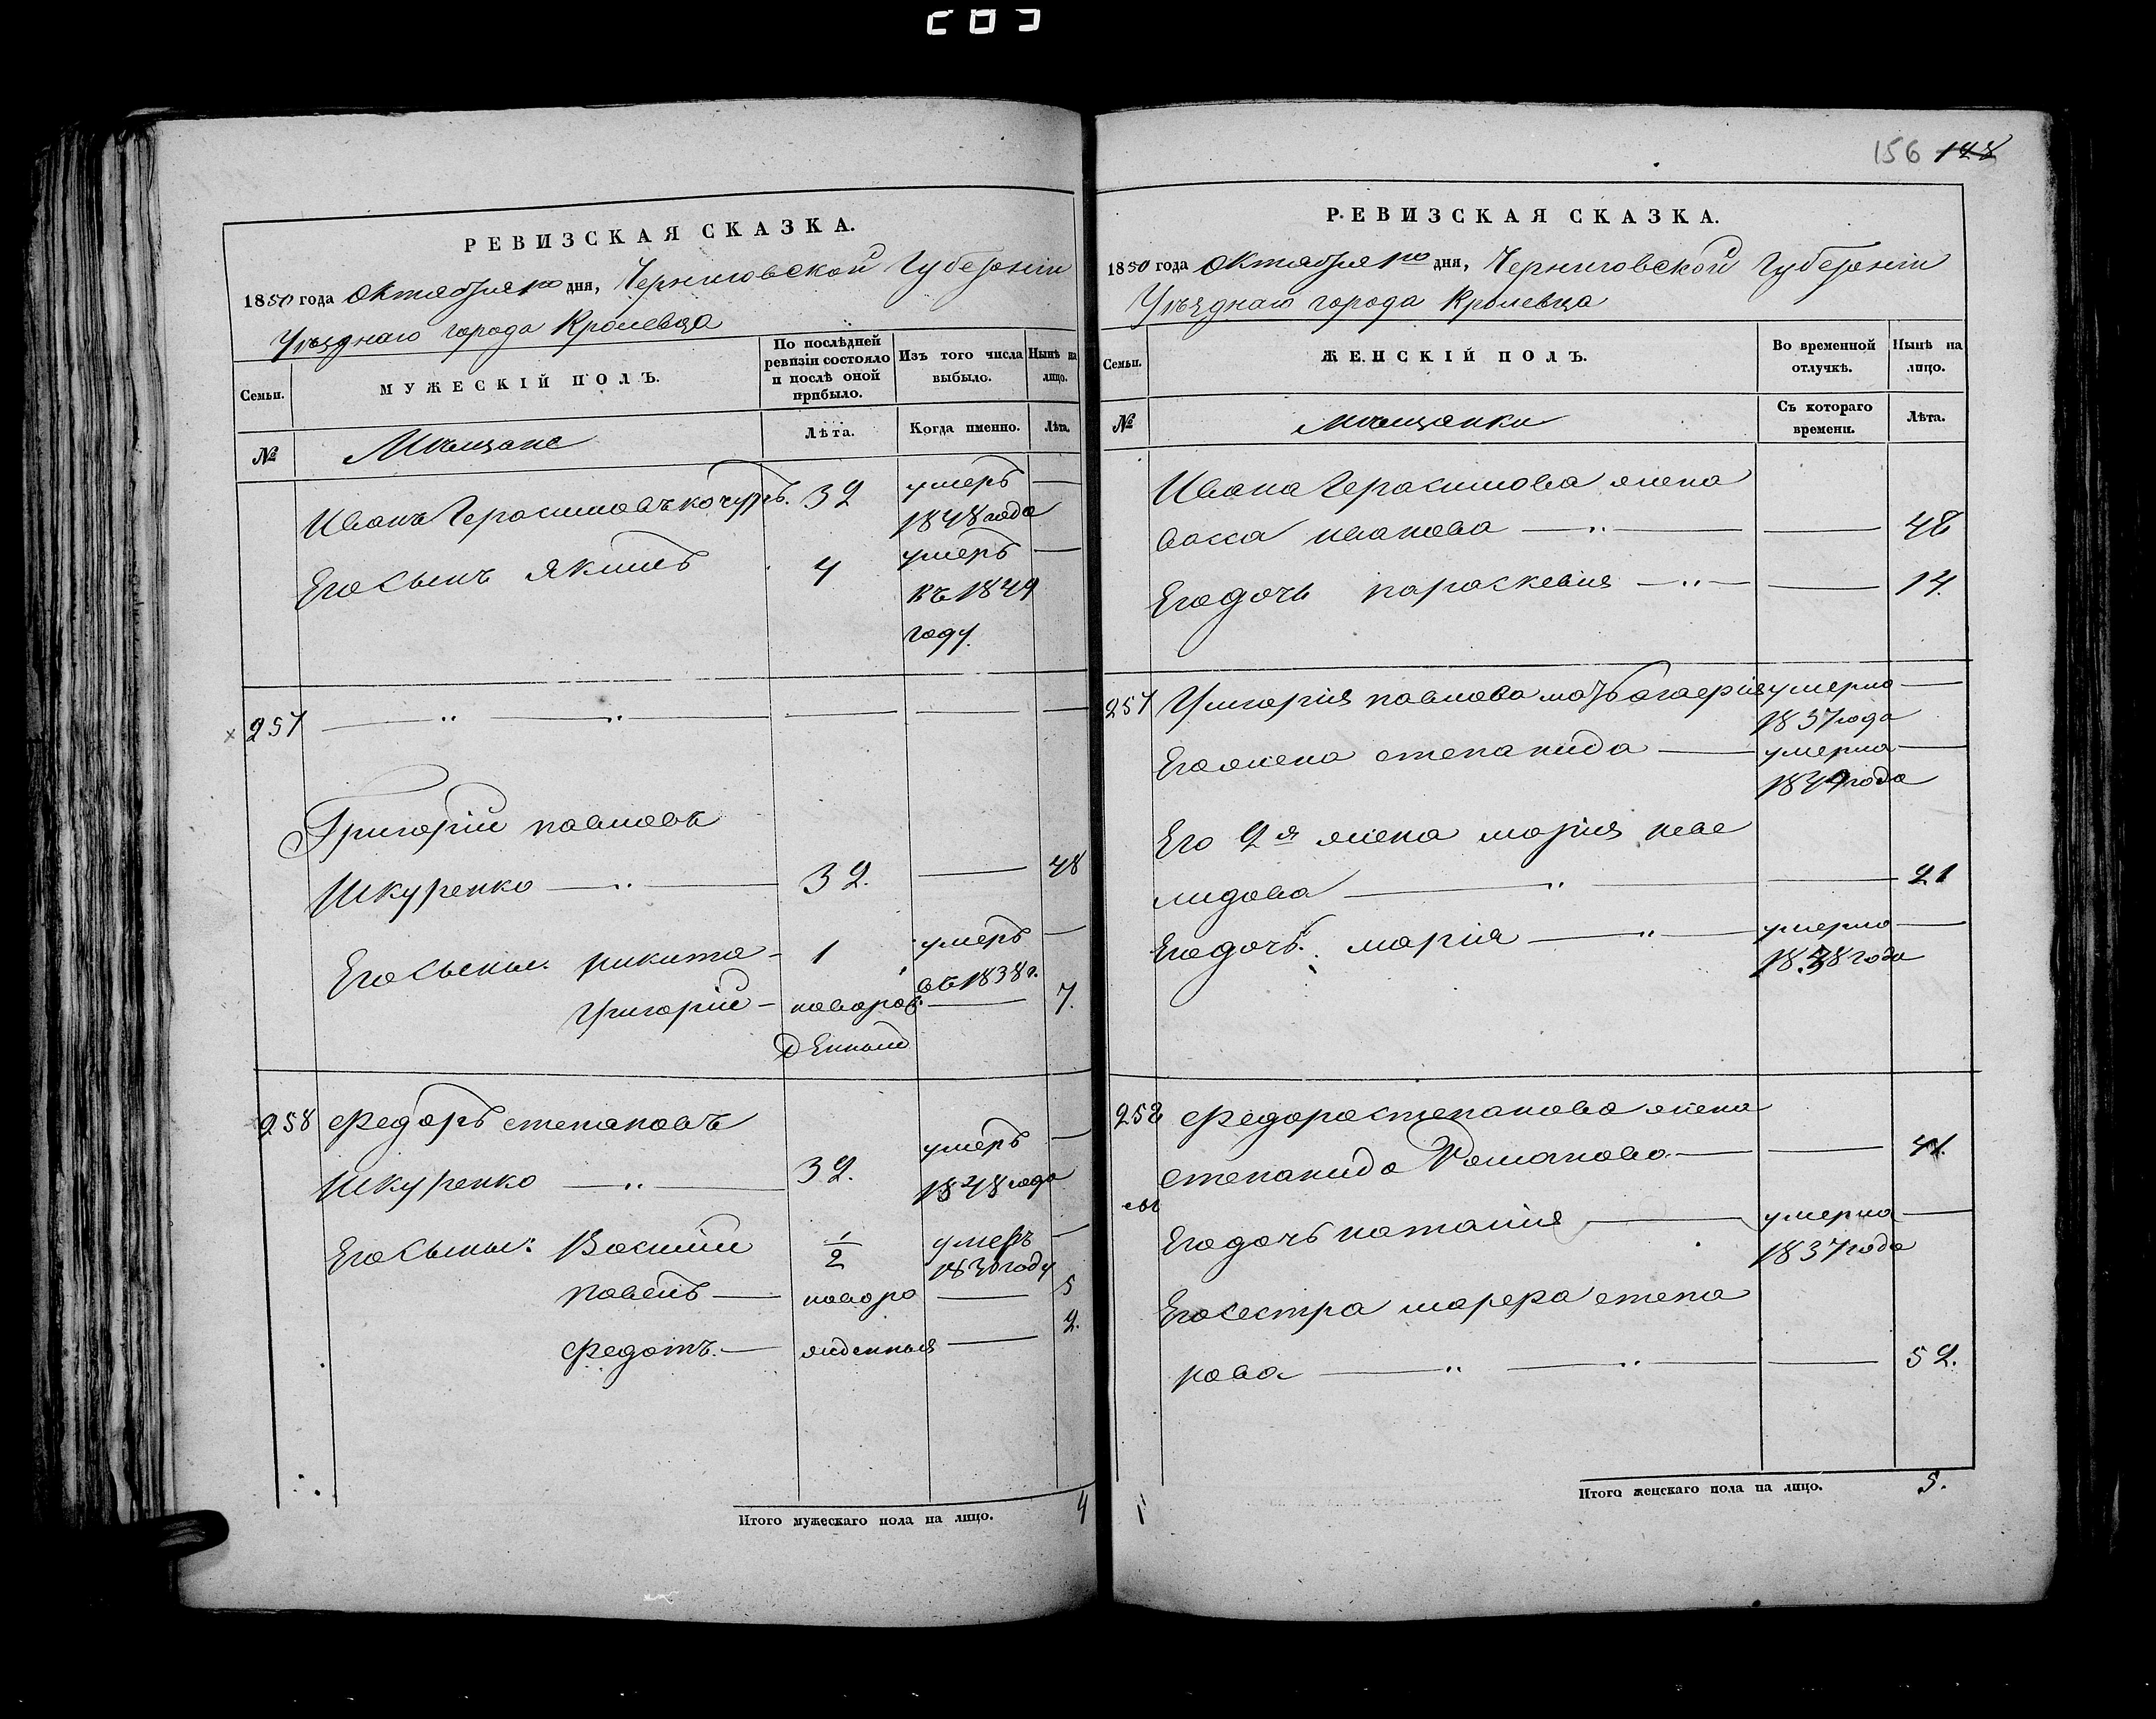 РЕВИЗСКАЯ СКАЗКА.
1850 года Октября 1го дня, Черниговской Губерніи
Уѣзднаго города Кролевца
Семьи.
МУЖЕСКІЙ ПОЛЪ.
По послѣдней ревизіи состояло и послѣ оной прибыло.
Изъ того числа выбыло.
Нынѣ на лицо.
№
Мѣщане
Лѣта.
Когда именно.
Лѣта.
Иванъ Герасимовъ Кочуръ. 32 умеръ —
1848 года
Его Сынъ Якимъ 4 умеръ —
въ 1844
году.
257 — „ — „ — — — —
Григорій павловъ
Шкуренко — „ — 32. — 48
Его Сыны: никита — 1 умеръ —
въ 1838 г.
Григорій — новорож — 7.
денный
258 Федоръ степановъ
Шкуренко — „ — 32. умеръ —
1848 года
Его Сыны: Василій 1/2 умеръ —
году
павелъ — новоро — 5
Федотъ. — жденныя — 2.
Итого мужескаго пола на лицо. 4
156 148
РЕВИЗСКАЯ СКАЗКА.
1850 года Октября 1го дня, Черниговской Губерніи
Уѣзднаго города Кролевца
Семьи.
ЖЕНСКІЙ ПОЛЪ.
Во временной отлучкѣ.
Нынѣ на лицо.
№
Мѣщанки
Съ котораго времени.
Лѣта.
Ивана Герасимова жена
васса иванова — „ — — 48
Его дочь параскевия — „ — — 14.
257 Григорія павлова мать агафія умерла —
1837 года
Его жена степанида — умерла —
года
Его 2я жена марія неве
лидова — „ — — 21
Его дочь. марія — „ — умерла —
1838 года
258 Федора степанова жена
степанида Романова — — 41.
Его дочь наталия — умерла —
1837 года
Его Сестра марфа степа
нова — „ — „ — — 52.
Итого женскаго пола на лицо. 5.